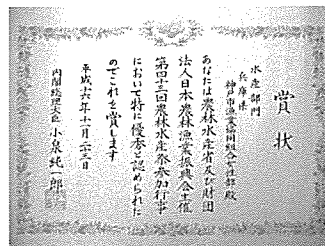 賞状
水産部門
兵庫県
神戸市漁業協同組合女性部殿
あなたは農林水産省及び財団
法人日本農林漁業振興会主催
第四十三回農林水産祭参加行事
において特に優秀と認められた
のでこれを賞します
平成十六年十一月二十三日
内閣総理大臣 小泉純一郎